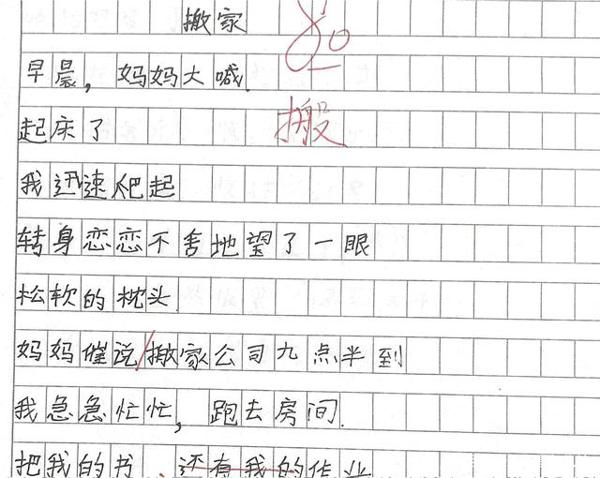 撤家
80
早晨，妈妈大喊.
搬
起床了
我迅速爬起
转身恋恋不舍地望了一眼
松软的枕头.
妈妈催说/撤家公司九点半到
我急急忙忙，跑去房间.
把我的书.还有我的作业